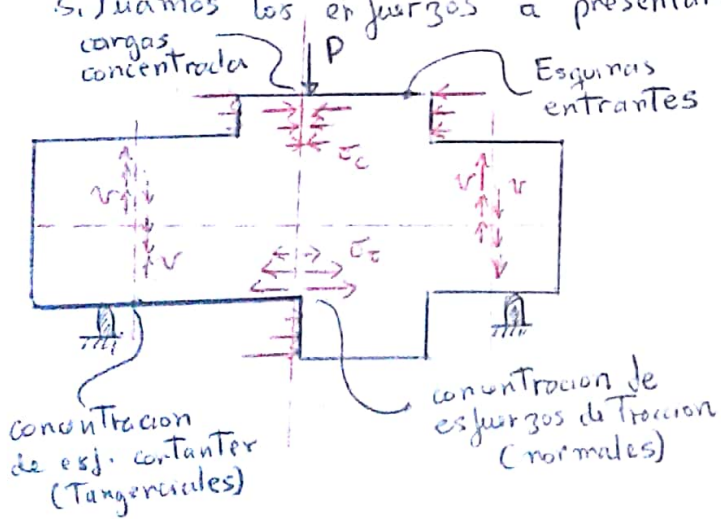 Situamos los esfuerzos a presentar
cargas
concentrada
P
Esquinas
entrantes
σc
v
v
v
v
στ
concentracion
de esf. cortanter
(Tangenciales)
concentracion de
esfuerzos de Traccion
(normales)